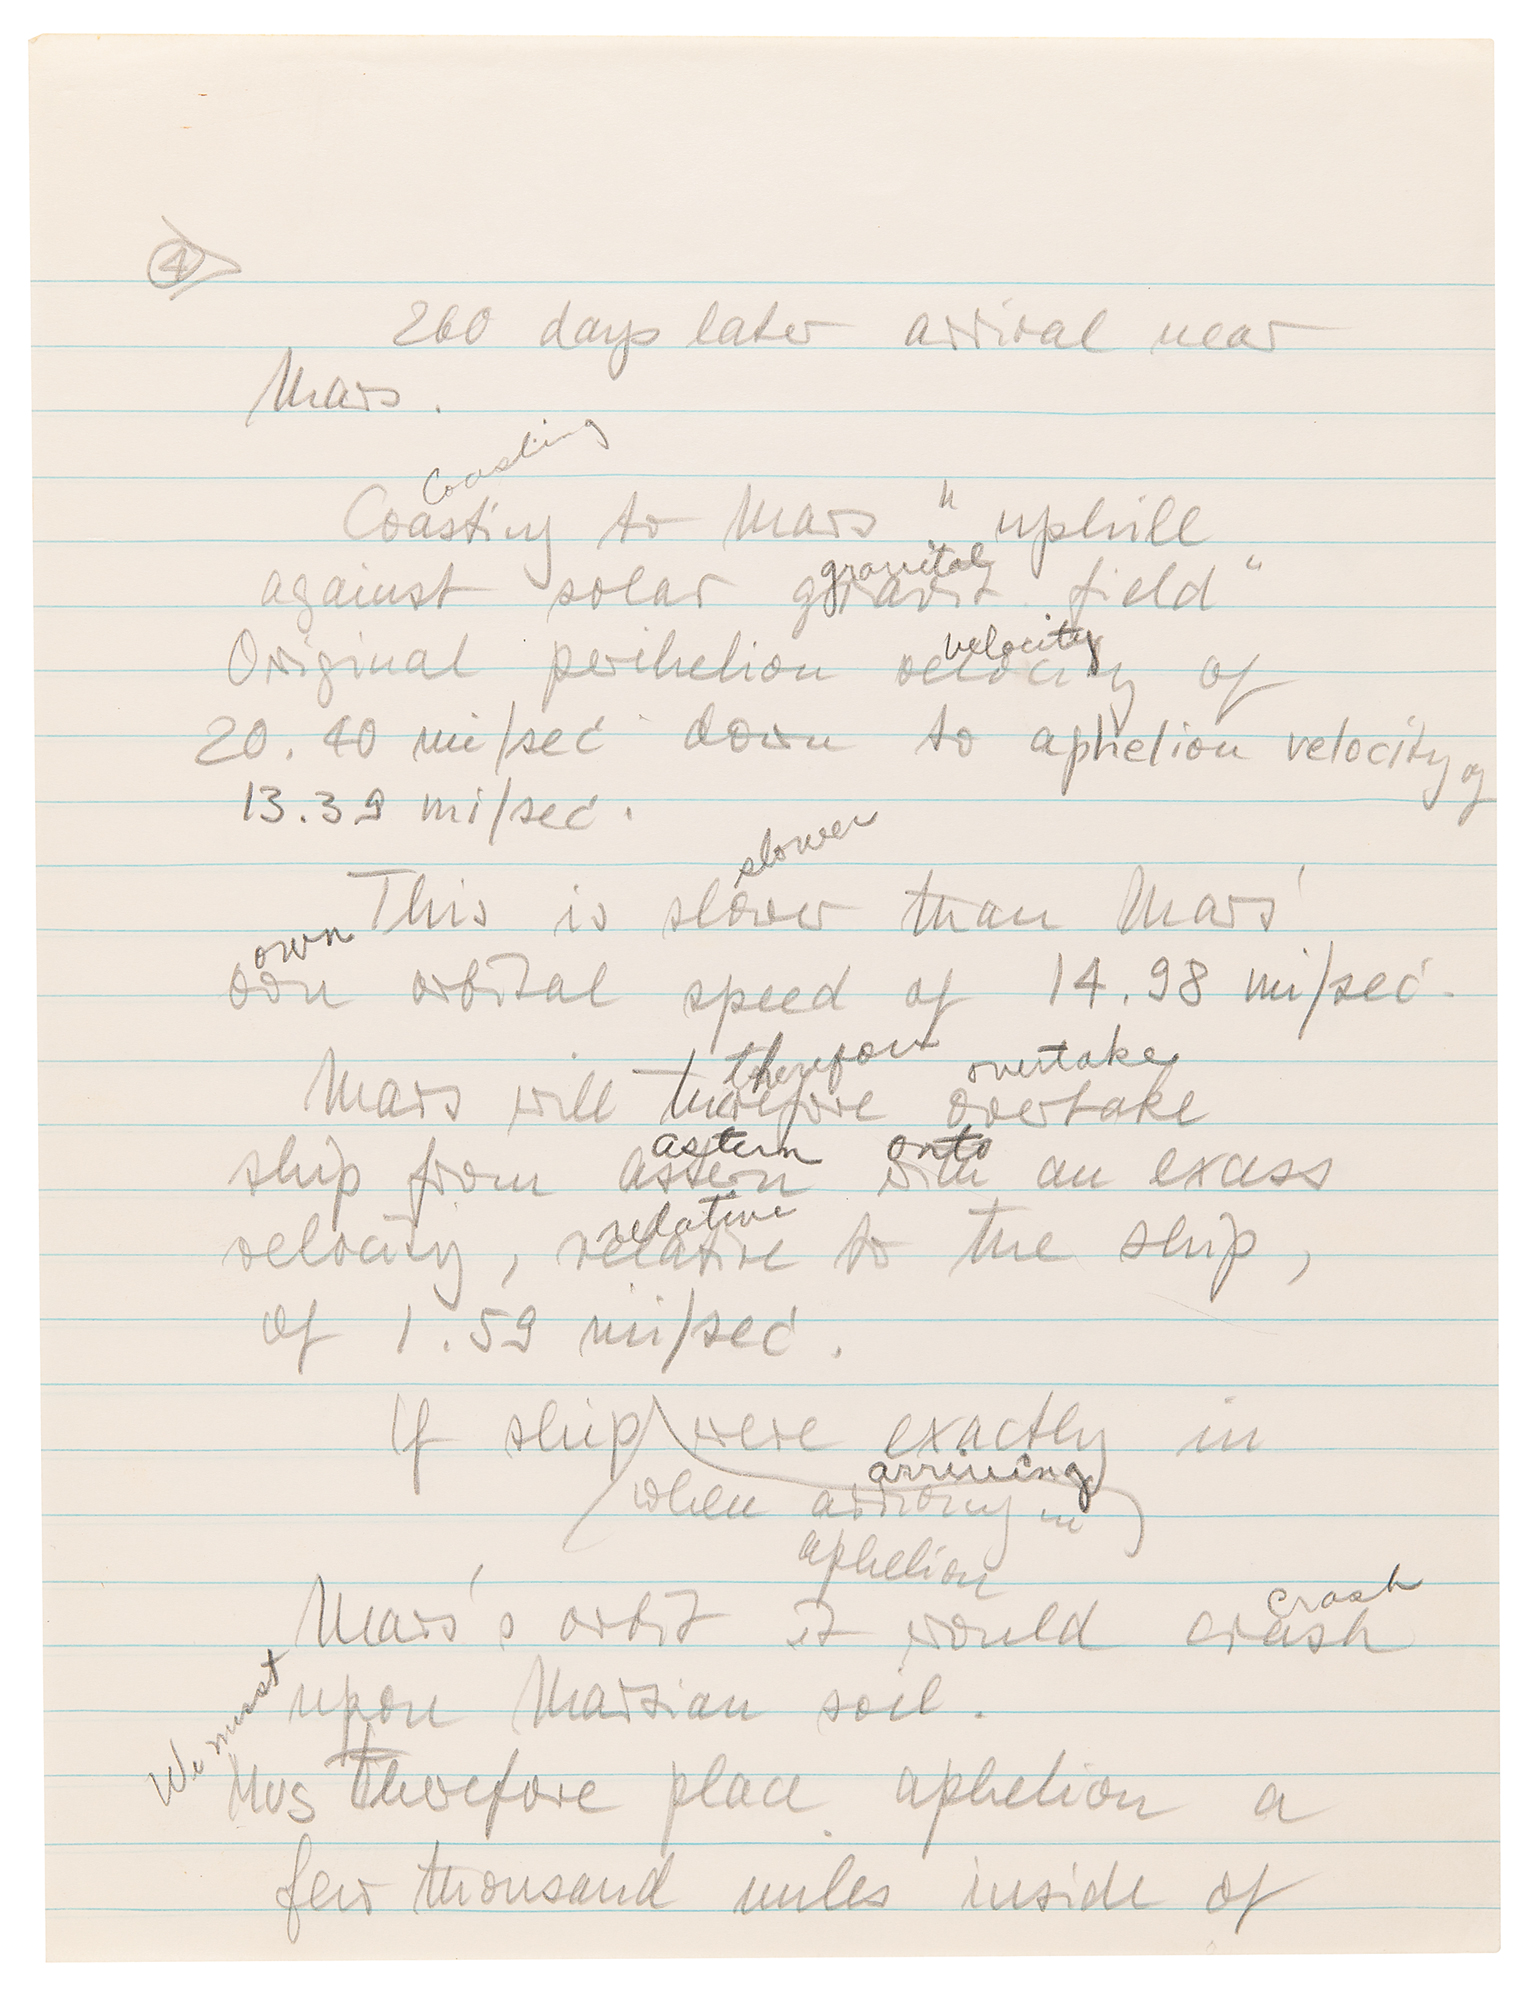 4
260 days later arrival near
Mars.
Coasting
Coasting to Mars "uphill
gravital
against solar gravit. field"
velocity
Original perihelion velocity of
20.40 mi/sec down to aphelion velocity of
13.39 mi/sec.
slower
This is slower than Mars'
own
own orbital speed of 14.98 mi/sec.
therefore overtake
Mars will therefore overtake
astern onto
ship from astern with an exass
relative
velocity, relative to the ship,
of 1.59 mi/sec.
If ship were exactly in
arriving
(when arriving in)
aphelion
crash
Mars's orbit it would crash
upon Martian soil.
We must
Mus therefore place aphelion a
few thousand miles inside of